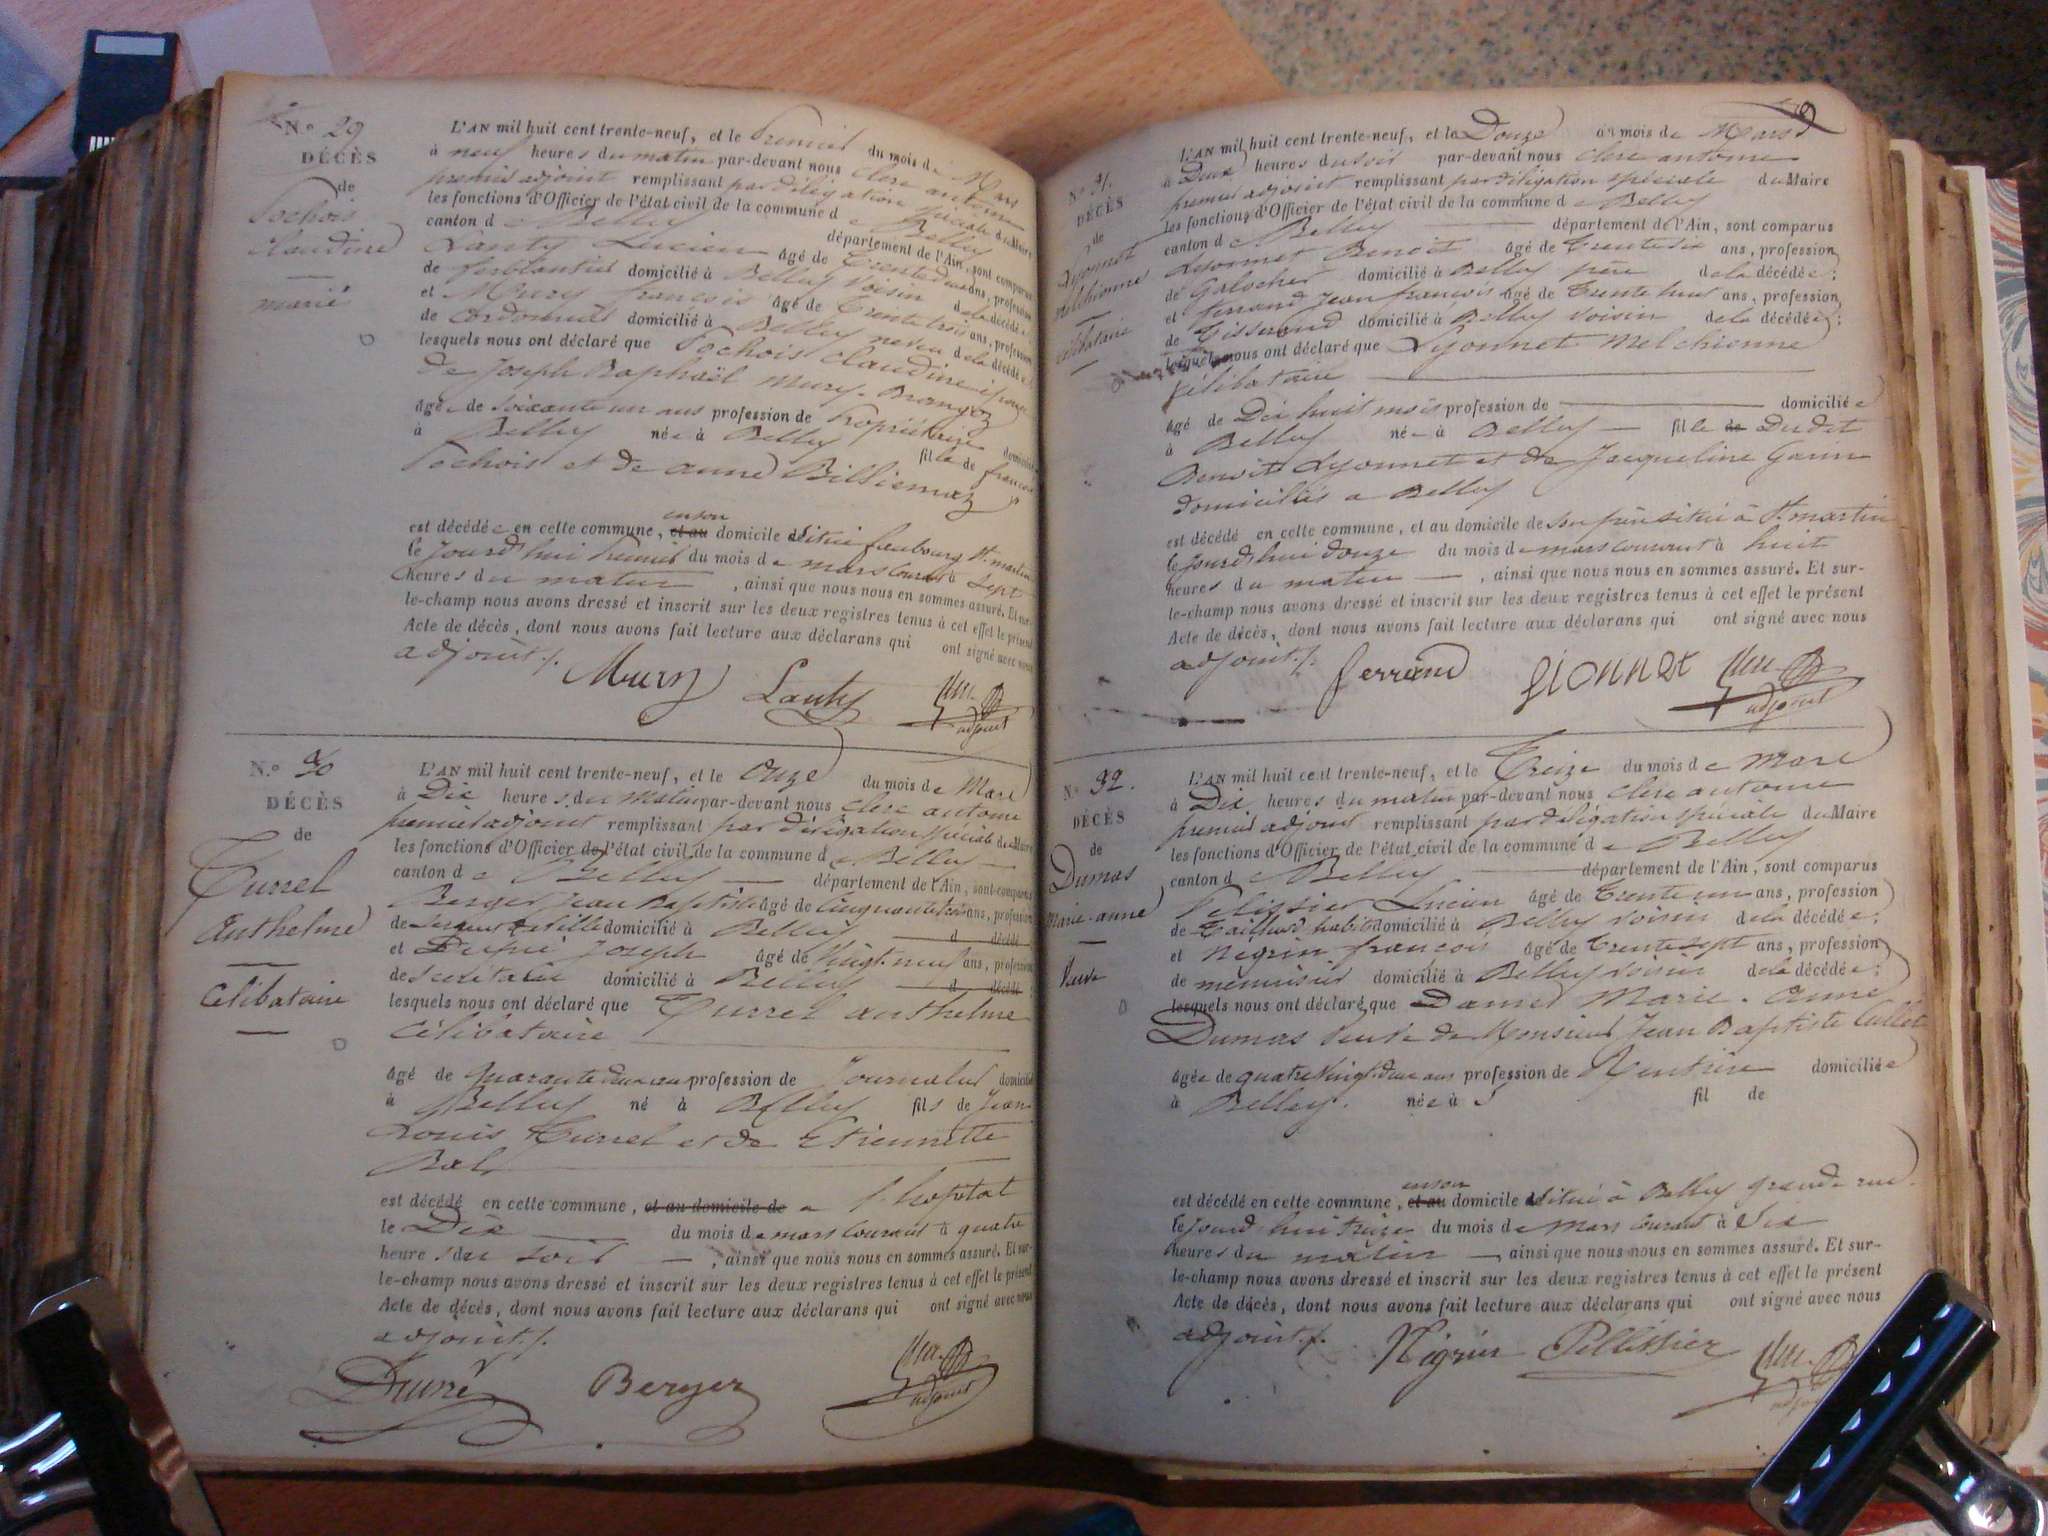 N.º 29
DÉCÈS
de
Pochois
claudine
marié
L'AN mil huit cent trente-neuf, et le Premier du mois de Mars
à neuf heures du matin par-devant nous clerc antoine
premier adjoint remplissant par délégation spéciale du Maire
les fonctions d'Officier de l'état civil de la commune de Belley
canton de Belley département de l'Ain, sont comparus
Lanty Lucien âgé de Trente deux ans, profession
de ferblantier domicilié à Belley voisin de la décédée
et Mury françois âgé de Trente trois ans, profession
de Cordonnier domicilié à Belley neveu de la décédée
lesquels nous ont déclaré que Pochois claudine épouse
de Joseph Raphaël Mury-
âgée de soixante un ans profession de Propriétaire domiciliée
à Belley née à Belley fille de françois
Pochois et de anne Billiemaz
est décédée en cette commune, et au en son domicile situé faubourg St. martin
le Jourd'hui Premier du mois de mars courant à Sept
heures du matin, ainsi que nous nous en sommes assuré. Et sur-
le-champ nous avons dressé et inscrit sur les deux registres tenus à cet effet le présent
Acte de décès, dont nous avons fait lecture aux déclarans qui ont signé avec nous
adjoint./.
Mury Lanty adjoint
N.º 30
DÉCÈS
de
Turrel
Anthelme
Célibataire
L'AN mil huit cent trente-neuf, et le Onze du mois de Mars
à Dix heures du matin par-devant nous clerc antoine
premier adjoint remplissant par délégation spéciale du Maire
les fonctions d'Officier de l'état civil de la commune de Belley
canton de Belley département de l'Ain, sont comparus
Berger Jean Baptiste âgé de Cinquante ans, profession
de Sergent de Ville domicilié à Belley d décédé
et Dupré Joseph âgé de Vingt-neuf ans, profession
de secrétaire domicilié à Belley d décédé
lesquels nous ont déclaré que Turrel anthelme
célibataire
âgé de quarante deux ans profession de Journalier domicilié
à Belley né à Belley fils de Jean
Louis Turrel et de Etiennette
Bal
est décédé en cette commune, et au domicile de a l'hopital
le Dix du mois de mars courant à quatre
heures du soir, ainsi que nous nous en sommes assuré. Et sur-
le-champ nous avons dressé et inscrit sur les deux registres tenus à cet effet le présent
Acte de décès, dont nous avons fait lecture aux déclarans qui ont signé avec nous
adjoint./.
Dupré Berger adjoint
N.º 31.
DÉCÈS
de
Lyonnet
Melchionne
célibataire
L'AN mil huit cent trente-neuf, et le Douze du mois de Mars
à Deux heures du soir par-devant nous clerc antoine
premier adjoint remplissant par délégation spéciale du Maire
les fonctions d'Officier de l'état civil de la commune de Belley
canton de Belley département de l'Ain, sont comparus
Lyonnet Benoit âgé de Trente six ans, profession
de Galocher domicilié à Belley père de la décédée;
et ferrand Jean françois âgé de Trente huit ans, profession
de Tisserand domicilié à Belley voisin de la décédée;
lesquels nous ont déclaré que Lyonnet Melchionne
Célibataire
âgé de Dix huit mois profession de domiciliée
à Belley née à Belley fille de Dudit
Benoit Lyonnet et de Jacqueline Garin
domiciliés a Belley
est décédée en cette commune, et au domicile de son père situé à St. martin
le Jourd'hui douze du mois de mars courant à huit
heures du matin, ainsi que nous nous en sommes assuré. Et sur-
le-champ nous avons dressé et inscrit sur les deux registres tenus à cet effet le présent
Acte de décès, dont nous avons fait lecture aux déclarans qui ont signé avec nous
adjoint./.
ferrand Lionnet adjoint
N.º 32.
DÉCÈS
de
Dumas
Marie-anne
Veuve
L'AN mil huit cent trente-neuf, et le Treize du mois de Mars
à Dix heures du matin par-devant nous clerc antoine
premier adjoint remplissant par délégation spéciale du Maire
les fonctions d'Officier de l'état civil de la commune de Belley
canton de Belley département de l'Ain, sont comparus
Pelissier Lucien âgé de Trente un ans, profession
de Tailleur d'habits domicilié à Belley voisin de la décédée;
et Negrin françois âgé de Trente sept ans, profession
de menuisier domicilié à Belley voisin de la décédée;
lesquels nous ont déclaré que Dame Marie-Anne
Dumas Veuve de Monsieur Jean Baptiste Cullet
âgée de quatre Vingt deux ans profession de Rentière domiciliée
à Belley. née à fil de
est décédé en cette commune, et au en son domicile situé à Belley grande rue
le Jourd'hui treize du mois de mars courant à Six
heures du matin, ainsi que nous nous en sommes assuré. Et sur-
le-champ nous avons dressé et inscrit sur les deux registres tenus à cet effet le présent
Acte de décès, dont nous avons fait lecture aux déclarans qui ont signé avec nous
adjoint./.
Négrin Pellissier